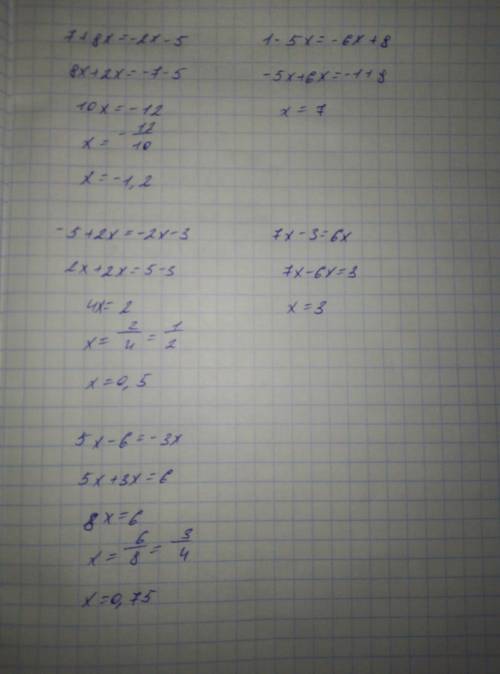 7+8x=-2x-5
8x+2x=-7-5
10x=-12
x=-12/10
x=-1,2
1-5x=-6x+8
-5x+6x=-1+8
x=7
-5+2x=-2x-3
2x+2x=5-3
4x=2
x=2/4=1/2
x=0,5
7x-3=6x
7x-6x=3
x=3
5x-6=-3x
5x+3x=6
8x=6
x=6/8=3/4
x=0,75